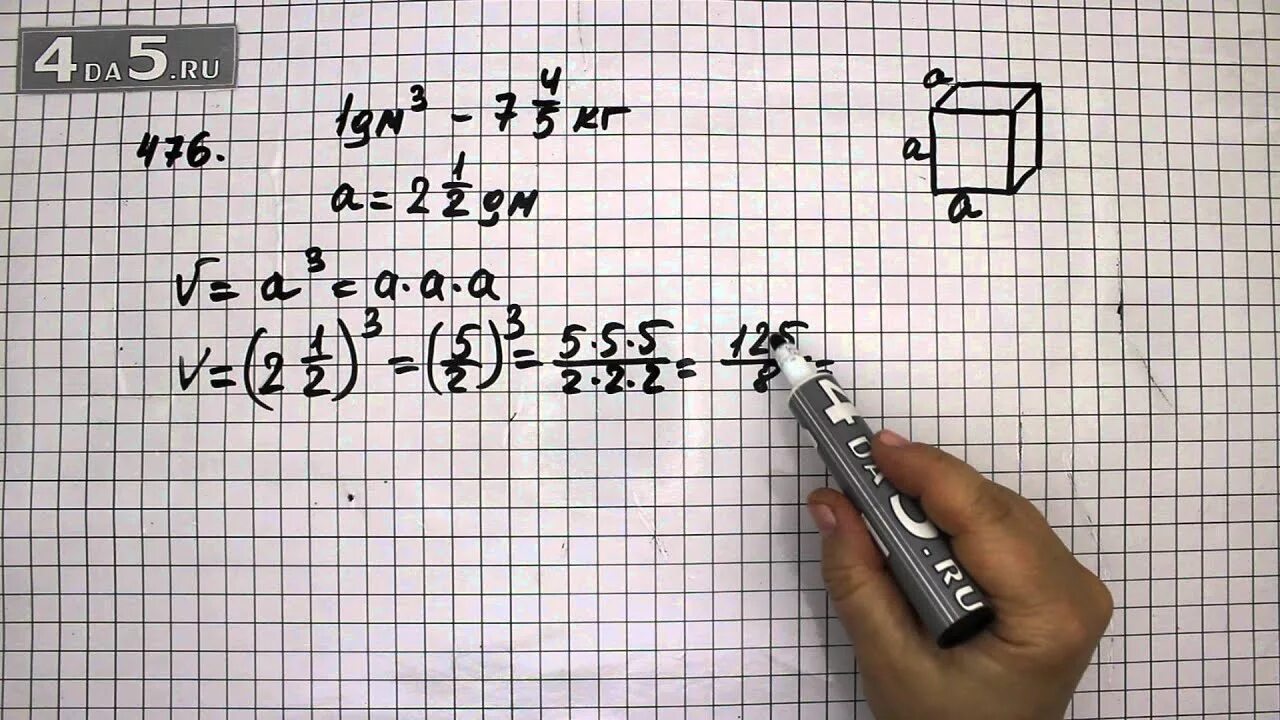 4DA5.RU
1дм³ – 7 4/5 кг
476.
a = 2 1/2 дм
a
a
a
V = a³ = a·a·a
V = (2 1/2)³ = (5/2)³ = 5·5·5/2·2·2 = 125/8 =
4DA5.RU